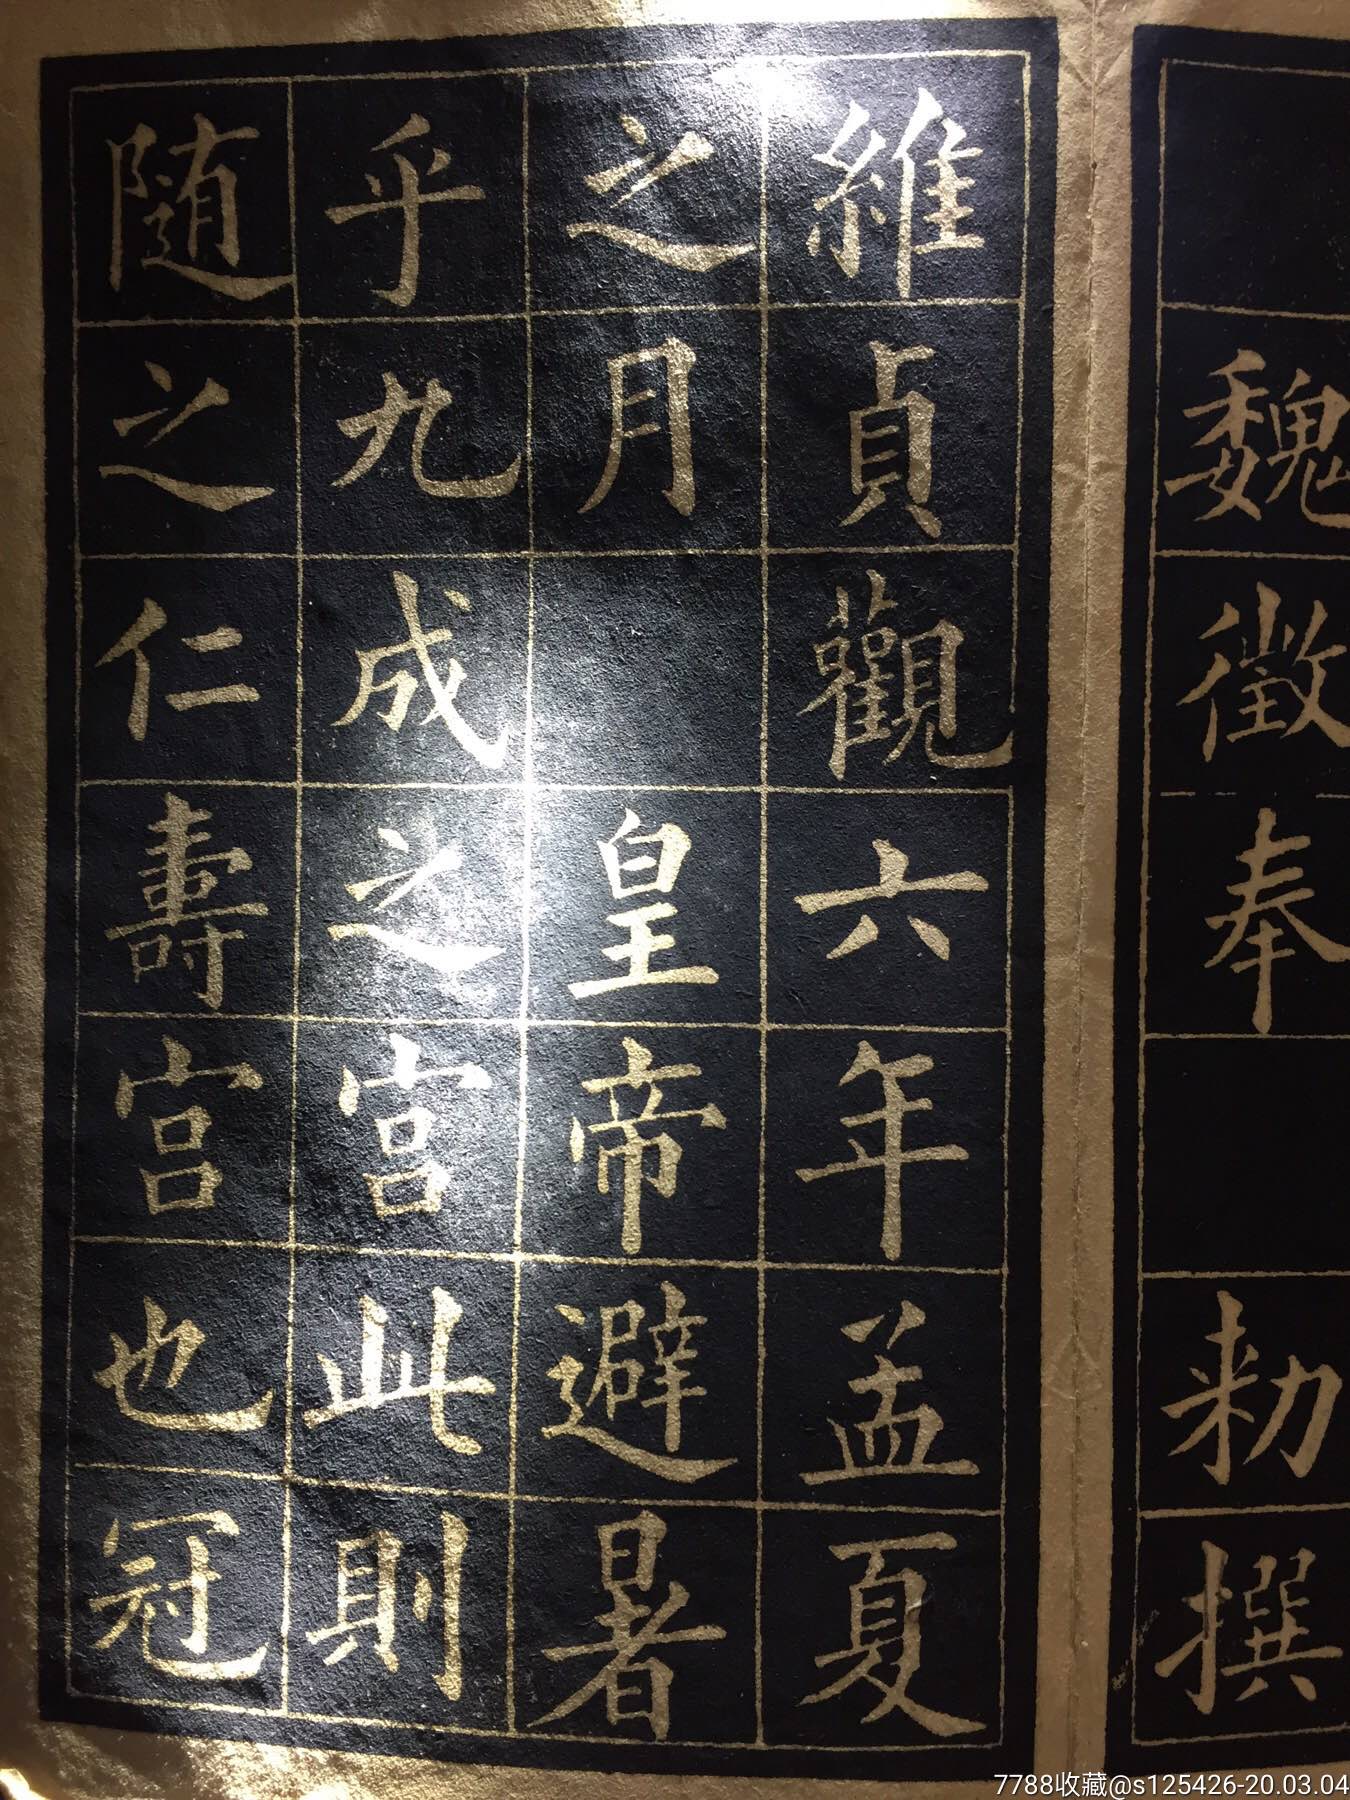 魏徵奉 勅撰
維貞觀六年孟夏
之月 皇帝避暑
乎九成之宮此則
随之仁壽宮也冠
7788收藏@s125426-20.03.04